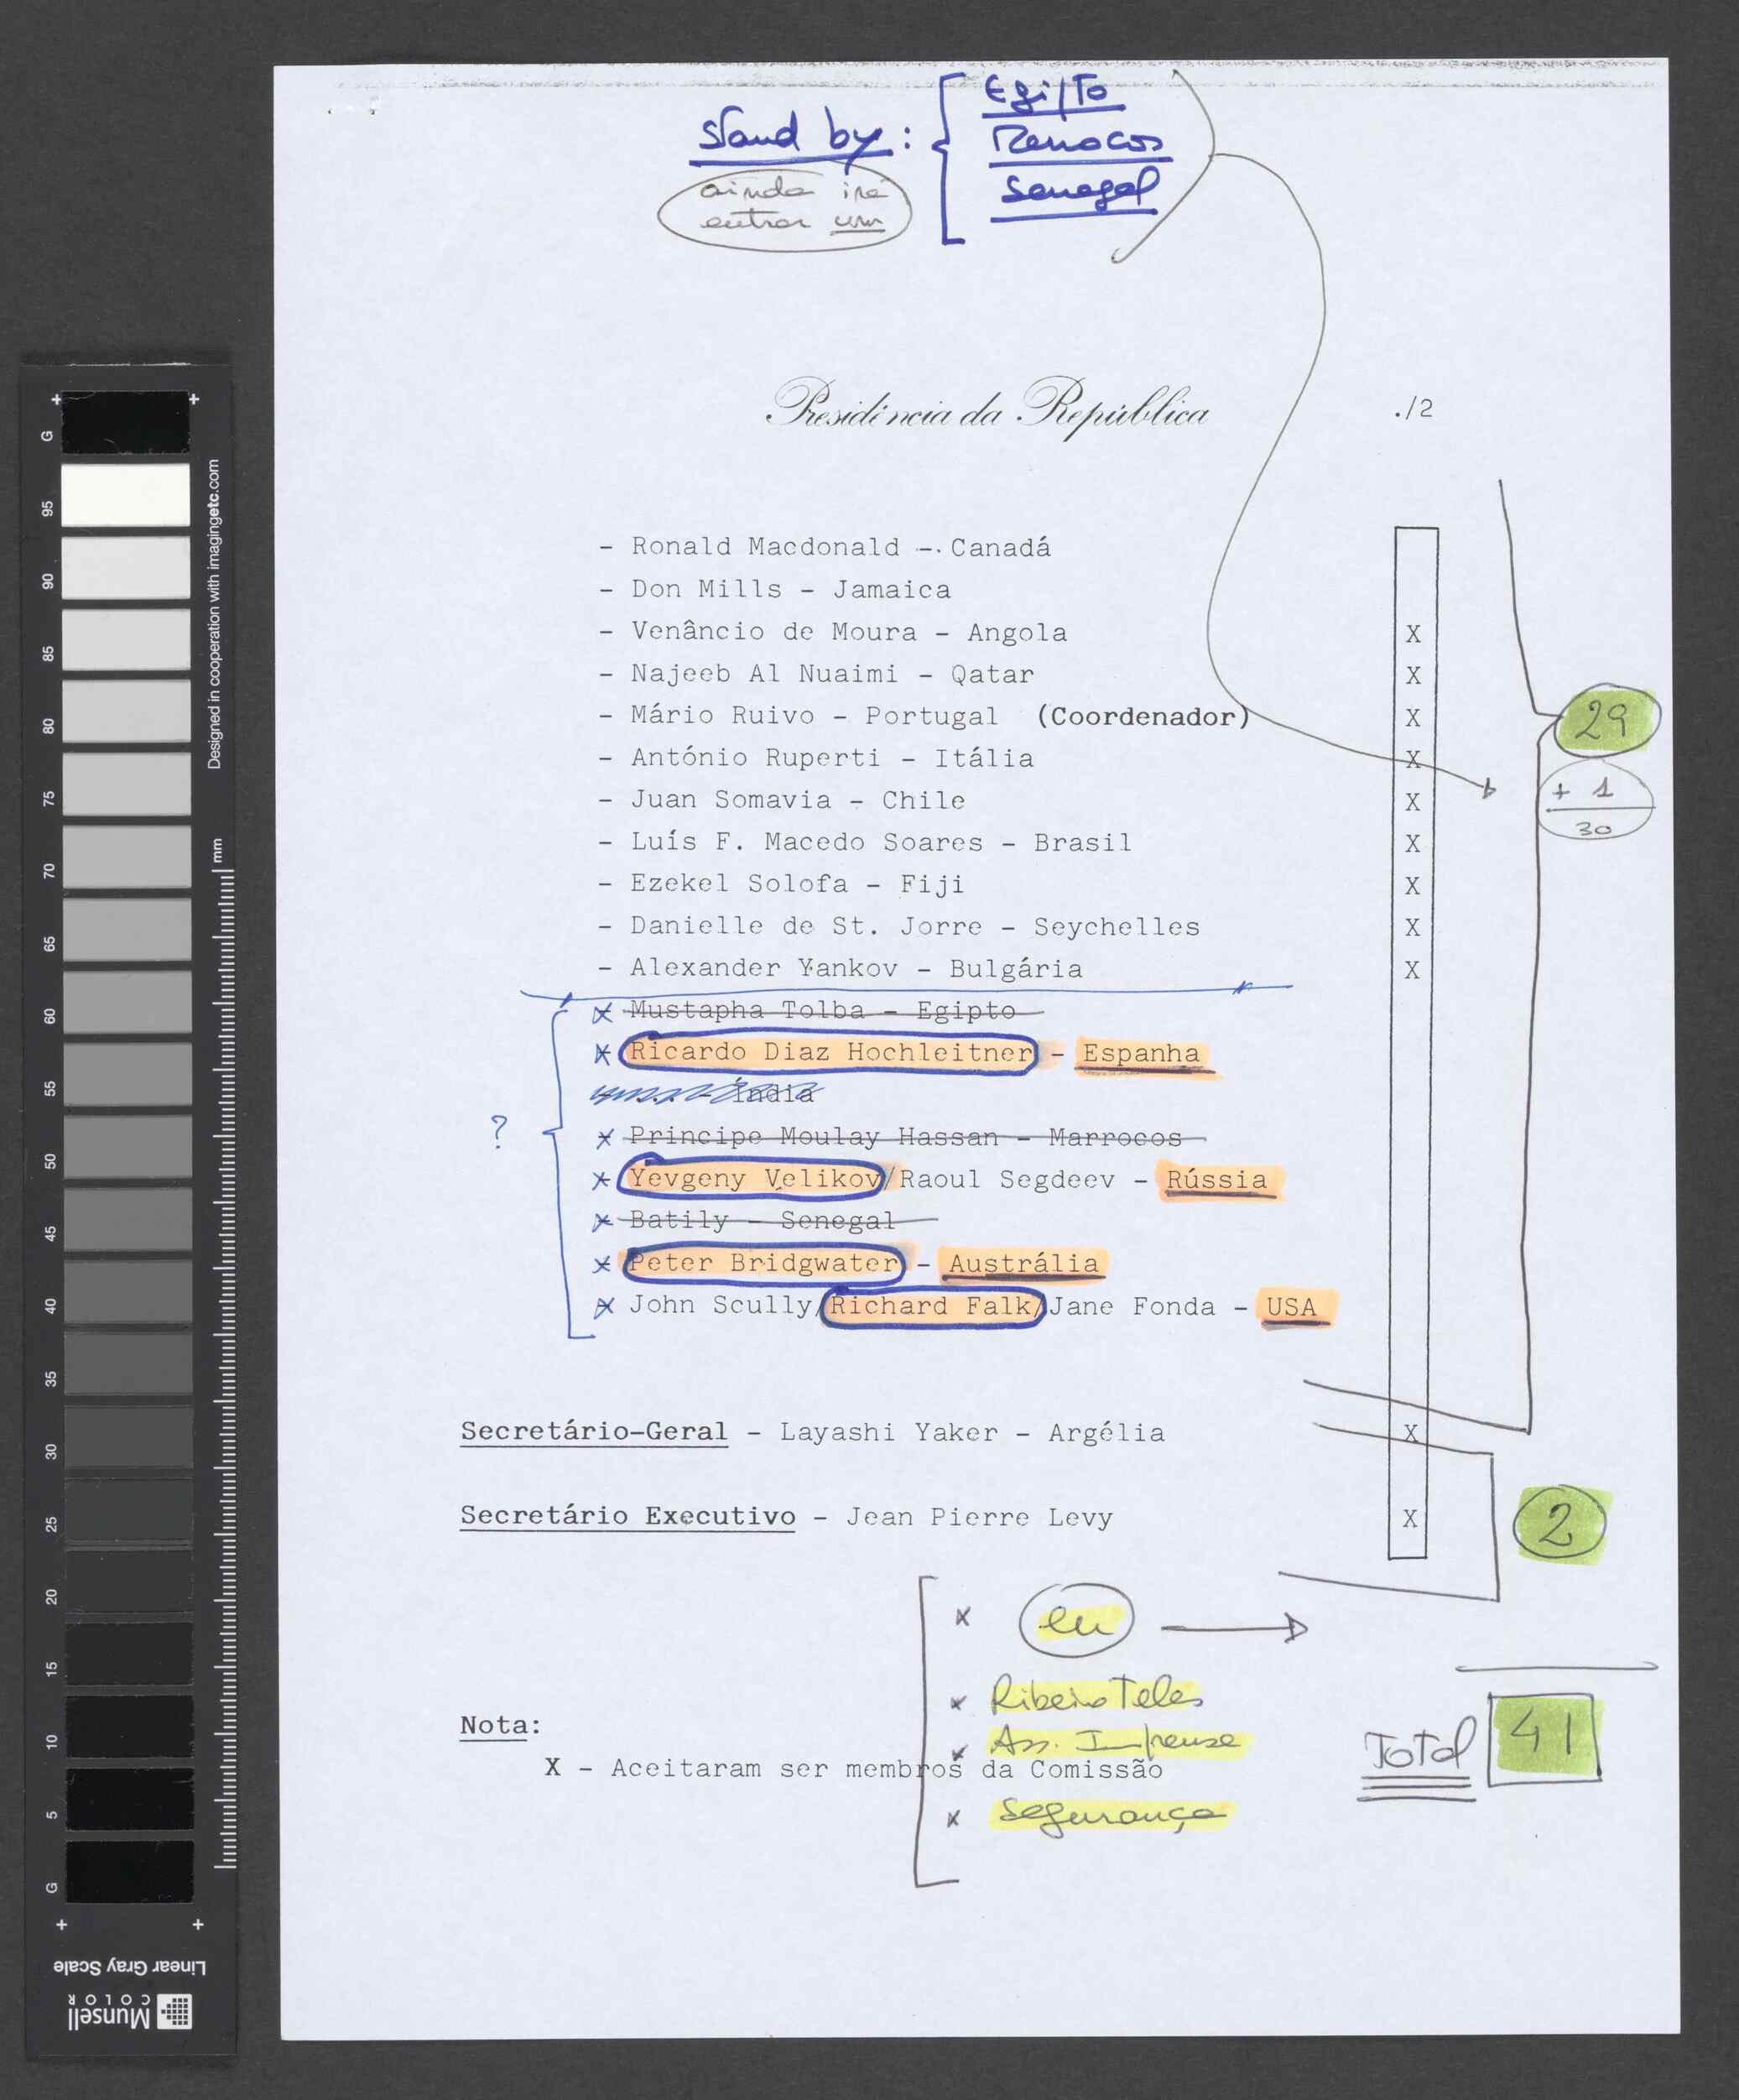 stand by: Egipto
Marrocos
Senegal
ainda irá
entrar um
Presidência da República ./2
- Ronald Macdonald - Canadá
- Don Mills - Jamaica
- Venâncio de Moura - Angola X
- Najeeb Al Nuaimi - Qatar X
- Mário Ruivo - Portugal (Coordenador) X
29
- António Ruperti - Itália X
- Juan Somavia - Chile X
+ 1
30
- Luís F. Macedo Soares - Brasil X
- Ezekel Solofa - Fiji X
- Danielle de St. Jorre - Seychelles X
- Alexander Yankov - Bulgária X
x Mustapha Tolba - Egipto
x Ricardo Diaz Hochleitner - Espanha
Índia
? x Principe Moulay Hassan - Marrocos
x Yevgeny Velikov/Raoul Segdeev - Rússia
x Batily - Senegal
x Peter Bridgwater - Austrália
x John Scully/Richard Falk/Jane Fonda - USA
Secretário-Geral - Layashi Yaker - Argélia X
Secretário Executivo - Jean Pierre Levy X
2
x eu
x Ribeiro Teles
x Ass. Imprensa
Nota:
X - Aceitaram ser membros da Comissão
Total 41
x Segurança
G 95 90 85 80 75 70 65 60 55 50 45 40 35 30 25 20 15 10 5 G
Designed in cooperation with imagingetc.com
mm
Linear Gray Scale
Munsell
COLOR